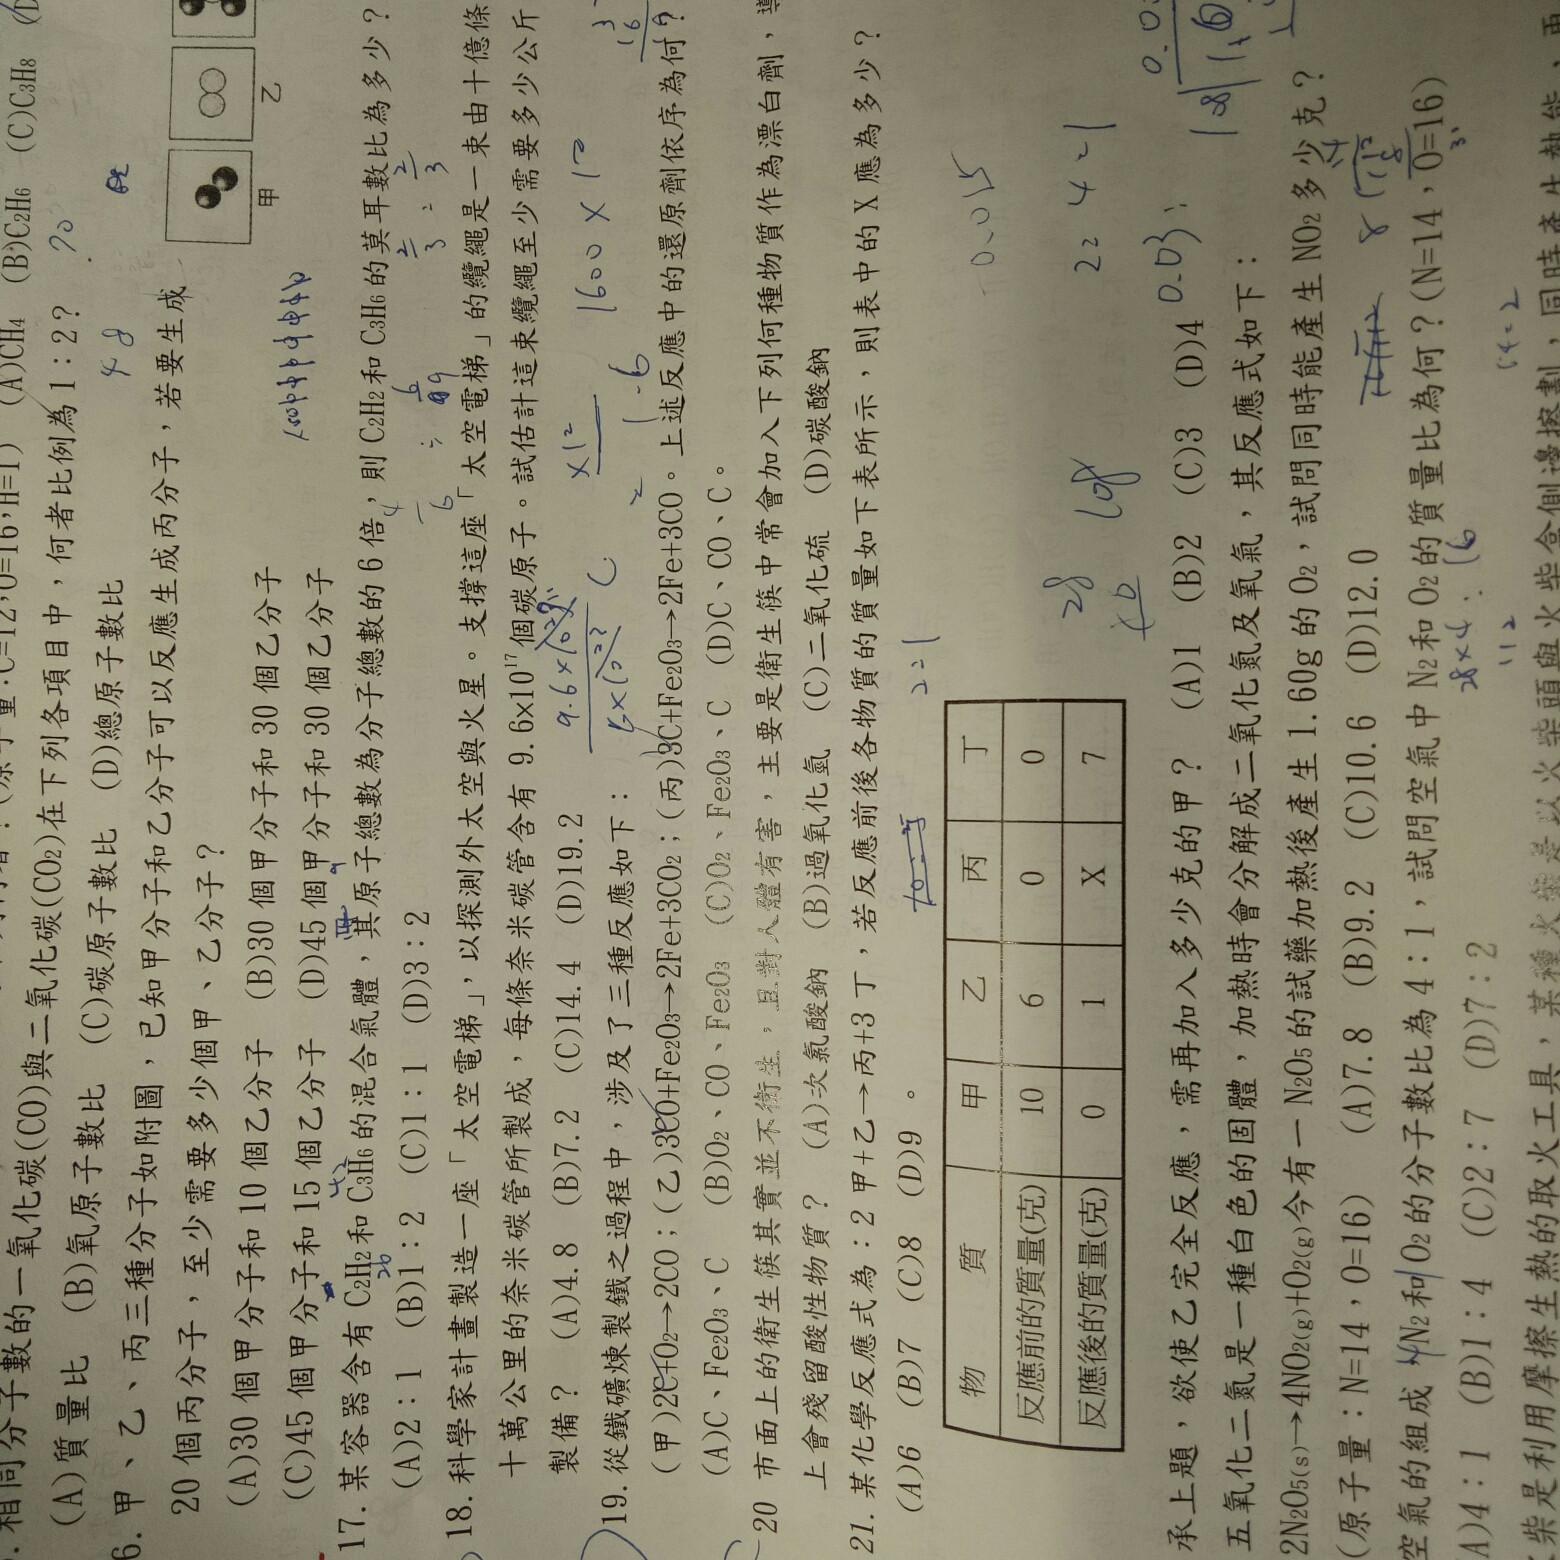 相同分子數的一氧化碳(CO)與二氧化碳(CO2)在下列各項目中，何者比例為1：2?
(A)CH4 (B)C2H6 (C)C3H8
(A)質量比 (B)氧原子數比 (C)碳原子數比 (D)總原子數比
6. 甲、乙、丙三種分子如附圖，已知甲分子和乙分子可以反應生成丙分子，若要生成
20個丙分子，至少需要多少個甲、乙分子？
甲
乙
(A)30個甲分子和10個乙分子 (B)30個甲分子和30個乙分子
(C)45個甲分子和15個乙分子 (D)45個甲分子和30個乙分子
17. 某容器含有C2H2和C3H6的混合氣體，其原子總數為分子總數的6倍，則C2H2和C3H6的莫耳數比為多少？
(A)2：1 (B)1：2 (C)1：1 (D)3：2
18. 科學家計畫製造一座「太空電梯」，以探測外太空與火星。支撐這座「太空電梯」的纜繩是一束由十億條
十萬公里的奈米碳管所製成，每條奈米碳管含有9.6x1017個碳原子。試估計這束纜繩至少需要多少公斤
製備？ (A)4.8 (B)7.2 (C)14.4 (D)19.2
9.6×
1600×12
×12
19. 從鐵礦煉製鐵之過程中，涉及了三種反應如下：
(甲)2C+O2→2CO；(乙)3CO+Fe2O3→2Fe+3CO2；(丙)3C+Fe2O3→2Fe+3CO。上述反應中的還原劑依序為何？
(A)C、Fe2O3、C (B)O2、CO、Fe2O3 (C)O2、Fe2O3、C (D)C、CO、C。
20 市面上的衛生筷其實並不衛生，且對人體有害，主要是衛生筷中常會加入下列何種物質作為漂白劑，導
上會殘留酸性物質？ (A)次氯酸鈉 (B)過氧化氫 (C)二氧化硫 (D)碳酸鈉
21. 某化學反應式為：2甲＋乙→丙＋3丁，若反應前後各物質的質量如下表所示，則表中的X應為多少？
(A)6 (B)7 (C)8 (D)9 。
物 質 甲 乙 丙 丁
反應前的質量(克) 10 6 0 0
反應後的質量(克) 0 1 X 7
2=1
0.015
28
108
0.03:
承上題，欲使乙完全反應，需再加入多少克的甲？ (A)1 (B)2 (C)3 (D)4
五氧化二氮是一種白色的固體，加熱時會分解成二氧化氮及氧氣，其反應式如下：
2N2O5(s)→4NO2(g)+O2(g)今有一N2O5的試藥加熱後產生1.60g的O2，試問同時能產生NO2多少克？
(原子量：N=14，O=16) (A)7.8 (B)9.2 (C)10.6 (D)12.0
空氣的組成N2和O2的分子數比為4：1，試問空氣中N2和O2的質量比為何？(N=14，O=16)
28×4：16
112
A)4：1 (B)1：4 (C)2：7 (D)7：2
柴是利用摩擦生熱的取火工具，某種火柴是以火柴頭與火柴盒側邊擦劃，同時產生熱能、再